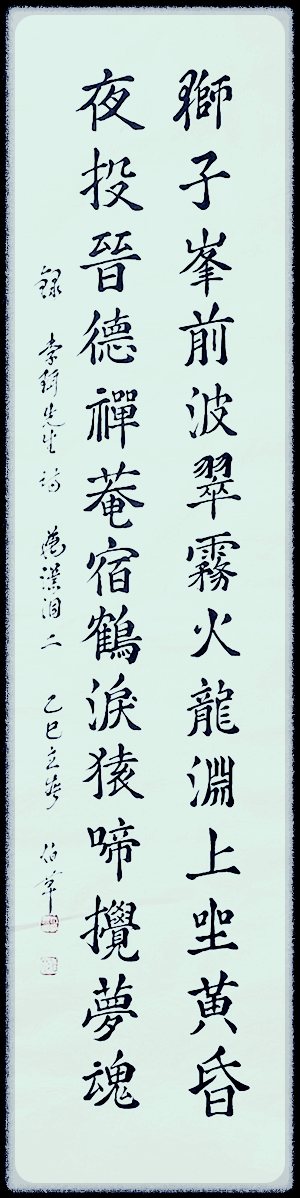 獅子峯前波翠霧火龍淵上坐黃昏
夜投晉德禪菴宿鶴淚猿啼攪夢魂
錄 李碕先生詩 二 乙巳立春